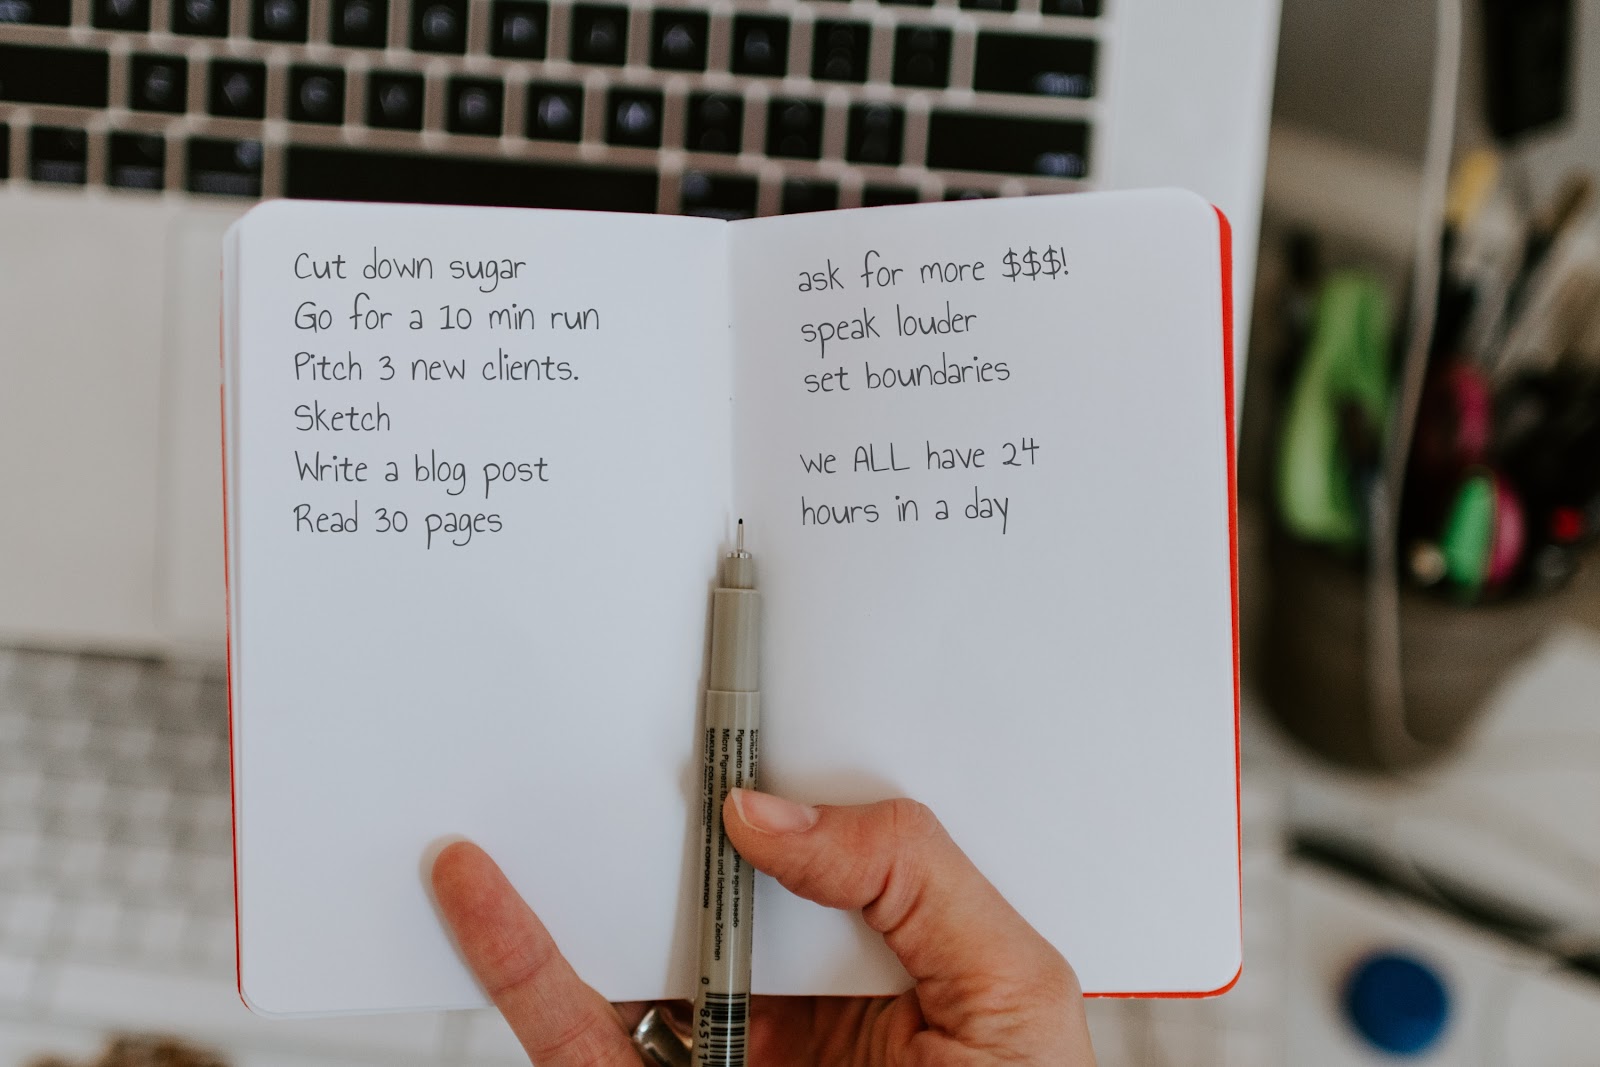 Cut down sugar
Go for a 10 min run
Pitch 3 new clients.
Sketch
Write a blog post
Read 30 pages
ask for more $$$!
speak louder
set boundaries
we ALL have 24
hours in a day
SAKURA COLOR PRODUCTS CORPORATION
Micro Pigment
und lichtechtes Zeichnen
Pigmento
0 84511